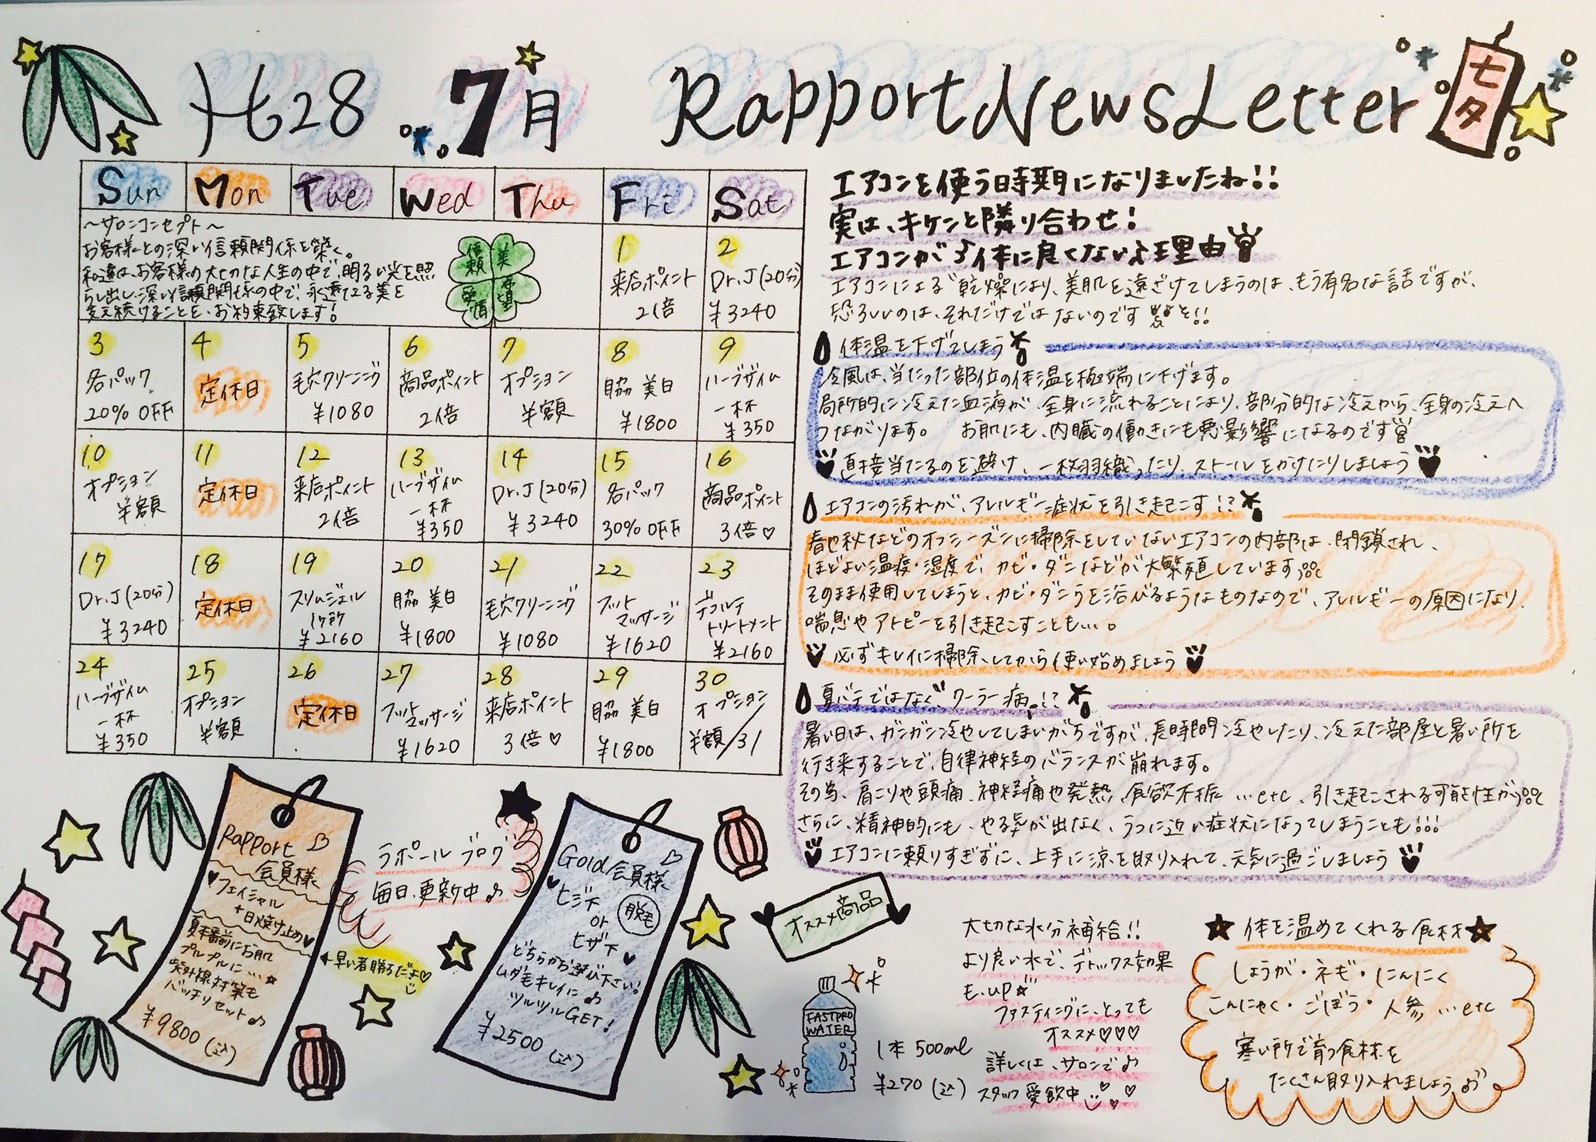 H28 .7月 Rapport News Letter
七夕
Sun Mon Tue Wed Thu Fri Sat
〜サロンコンセプト〜
お客様との深い信頼関係を築く。
私達は、お客様の大切な人生の中で、明るい光を照
らし出し、深い信頼関係の中で、永遠なる美を
支え続けることを、お約束致します!
信頼 美 愛情 希望
1 来店ポイント 2倍
2 Dr.J(20分) ¥3240
3 各パック 20% OFF
4 定休日
5 毛穴クリーニング ¥1080
6 商品ポイント 2倍
7 オプション 半額
8 脇 美白 ¥1800
9 ハーブザイム 一杯 ¥350
10 オプション 半額
11 定休日
12 来店ポイント 2倍
13 ハーブザイム 一杯 ¥350
14 Dr.J(20分) ¥3240
15 各パック 30% OFF
16 商品ポイント 3倍♡
17 Dr.J(20分) ¥3240
18 定休日
19 スリムジェル 1ヶ所 ¥2160
20 脇 美白 ¥1800
21 毛穴クリーニング ¥1080
22 フットマッサージ ¥1620
23 デコルテトリートメント ¥2160
24 ハーブザイム 一杯 ¥350
25 オプション 半額
26 定休日
27 フットマッサージ ¥1620
28 来店ポイント 3倍♡
29 脇 美白 ¥1800
30 オプション 半額/31
エアコンを使う時期になりましたね!!
実は、キケンと隣り合わせ!
エアコンが♪体に良くない♪理由
エアコンによる乾燥により、美肌を遠ざけてしまうのは、もう有名な話ですが、
恐ろしいのは、それだけではないのです
体温を下げてしまう
冷風は、当たった部位の体温を極端に下げます。
局所的に冷えた血液が、全身に流れることにより、部分的な冷えから、全身の冷えへ
つながります。 お肌にも、内臓の働きにも悪影響になるのです
直接当たるのを避け、一枚羽織ったり、ストールをかけたりしましょう
エアコンの汚れが、アレルギー症状を引き起こす!?
春や秋などのオフシーズンに掃除をしていないエアコンの内部は、閉鎖され、
ほどよい温度・湿度で、カビ・ダニなどが大繁殖しています
そのまま使用してしまうと、カビ・ダニを浴びるようなものなので、アレルギーの原因になり、
喘息やアトピーを引き起こすことも…。
必ずキレイに掃除してから使い始めましょう
夏バテではなくクーラー病!?
暑い日は、ガンガン冷やしてしまいがちですが、長時間冷やしたり、冷えた部屋と暑い所を
行き来することで、自律神経のバランスが崩れます。
その為、肩こりや頭痛、神経痛や発熱、食欲不振…etc、引き起こされる可能性が
さらに、精神的にも、やる気が出なく、うつに近い症状になってしまうことも!!!
エアコンに頼りすぎずに、上手に涼を取り入れて、元気に過ごしましょう
Rapport♡
会員様
♥フェイシャル
+日焼け止め♥
夏本番前にお肌
プルプルに…☆
紫外線対策も
バッチリセット♪
¥9800(込)
ラポールブログ
毎日、更新中♪
早い者勝ちだよ♡
Gold会員様♡
♥ヒジ下
or
ヒザ下♥
脱毛
どちらかお選び下さい!
ムダ毛キレイに♪
ツルツルGET!
¥2500(込)
オススメ商品
FASTPRO
WATER
1本 500ml
¥270(込)
大切な水分補給!!
より良い水で、デトックス効果
も、up☆
ファスティングに、とっても
オススメ♡♡♡
詳しくは、サロンで♪
スタッフ愛飲中
★体を温めてくれる食材★
しょうが・ネギ・にんにく
こんにゃく・ごぼう・人参…etc
寒い所で育つ食材を
たくさん取り入れましょう♪